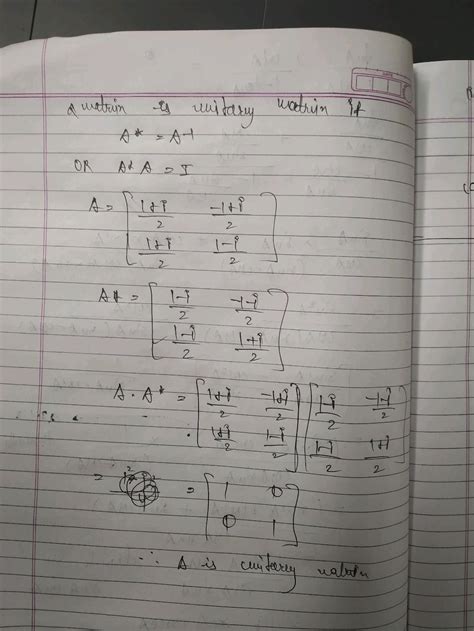 A matrix is unitary matrix if
A* = A-1
OR A* A = I
A = [ (1+i)/2 (-1+i)/2
(1+i)/2 (1-i)/2 ]
A* = [ (1-i)/2 (-1-i)/2
(1-i)/2 (1+i)/2 ]
A . A* = [ (1+i)/2 (-1+i)/2 [ (1-i)/2 (-1-i)/2
(1+i)/2 (1-i)/2 ] (1-i)/2 (1+i)/2 ]
= = [ 1 0
0 1 ]
∴ A is unitary matrix